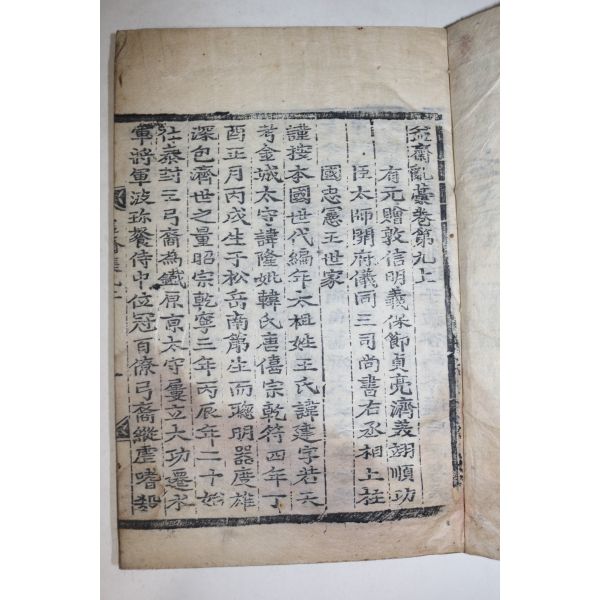 益齋亂藁卷第九上
有元贈敦信明義保節貞亮濟羙翊順功
臣太師開府儀同三司尚書右丞相上柱
國忠憲王世家
謹按本國世代編年太祖姓王氏諱建字若天
考金城太守諱隆妣韓氏唐僖宗乾符四年丁
酉正月丙戌生于松岳南第生而聰明器度雄
深包濟世之量昭宗乾寧三年丙辰年二十始
仕泰封王弓裔為鐵原京太守屢立大功遷水
軍將軍波珍餐侍中位冠百僚弓裔縱虐嗜殺